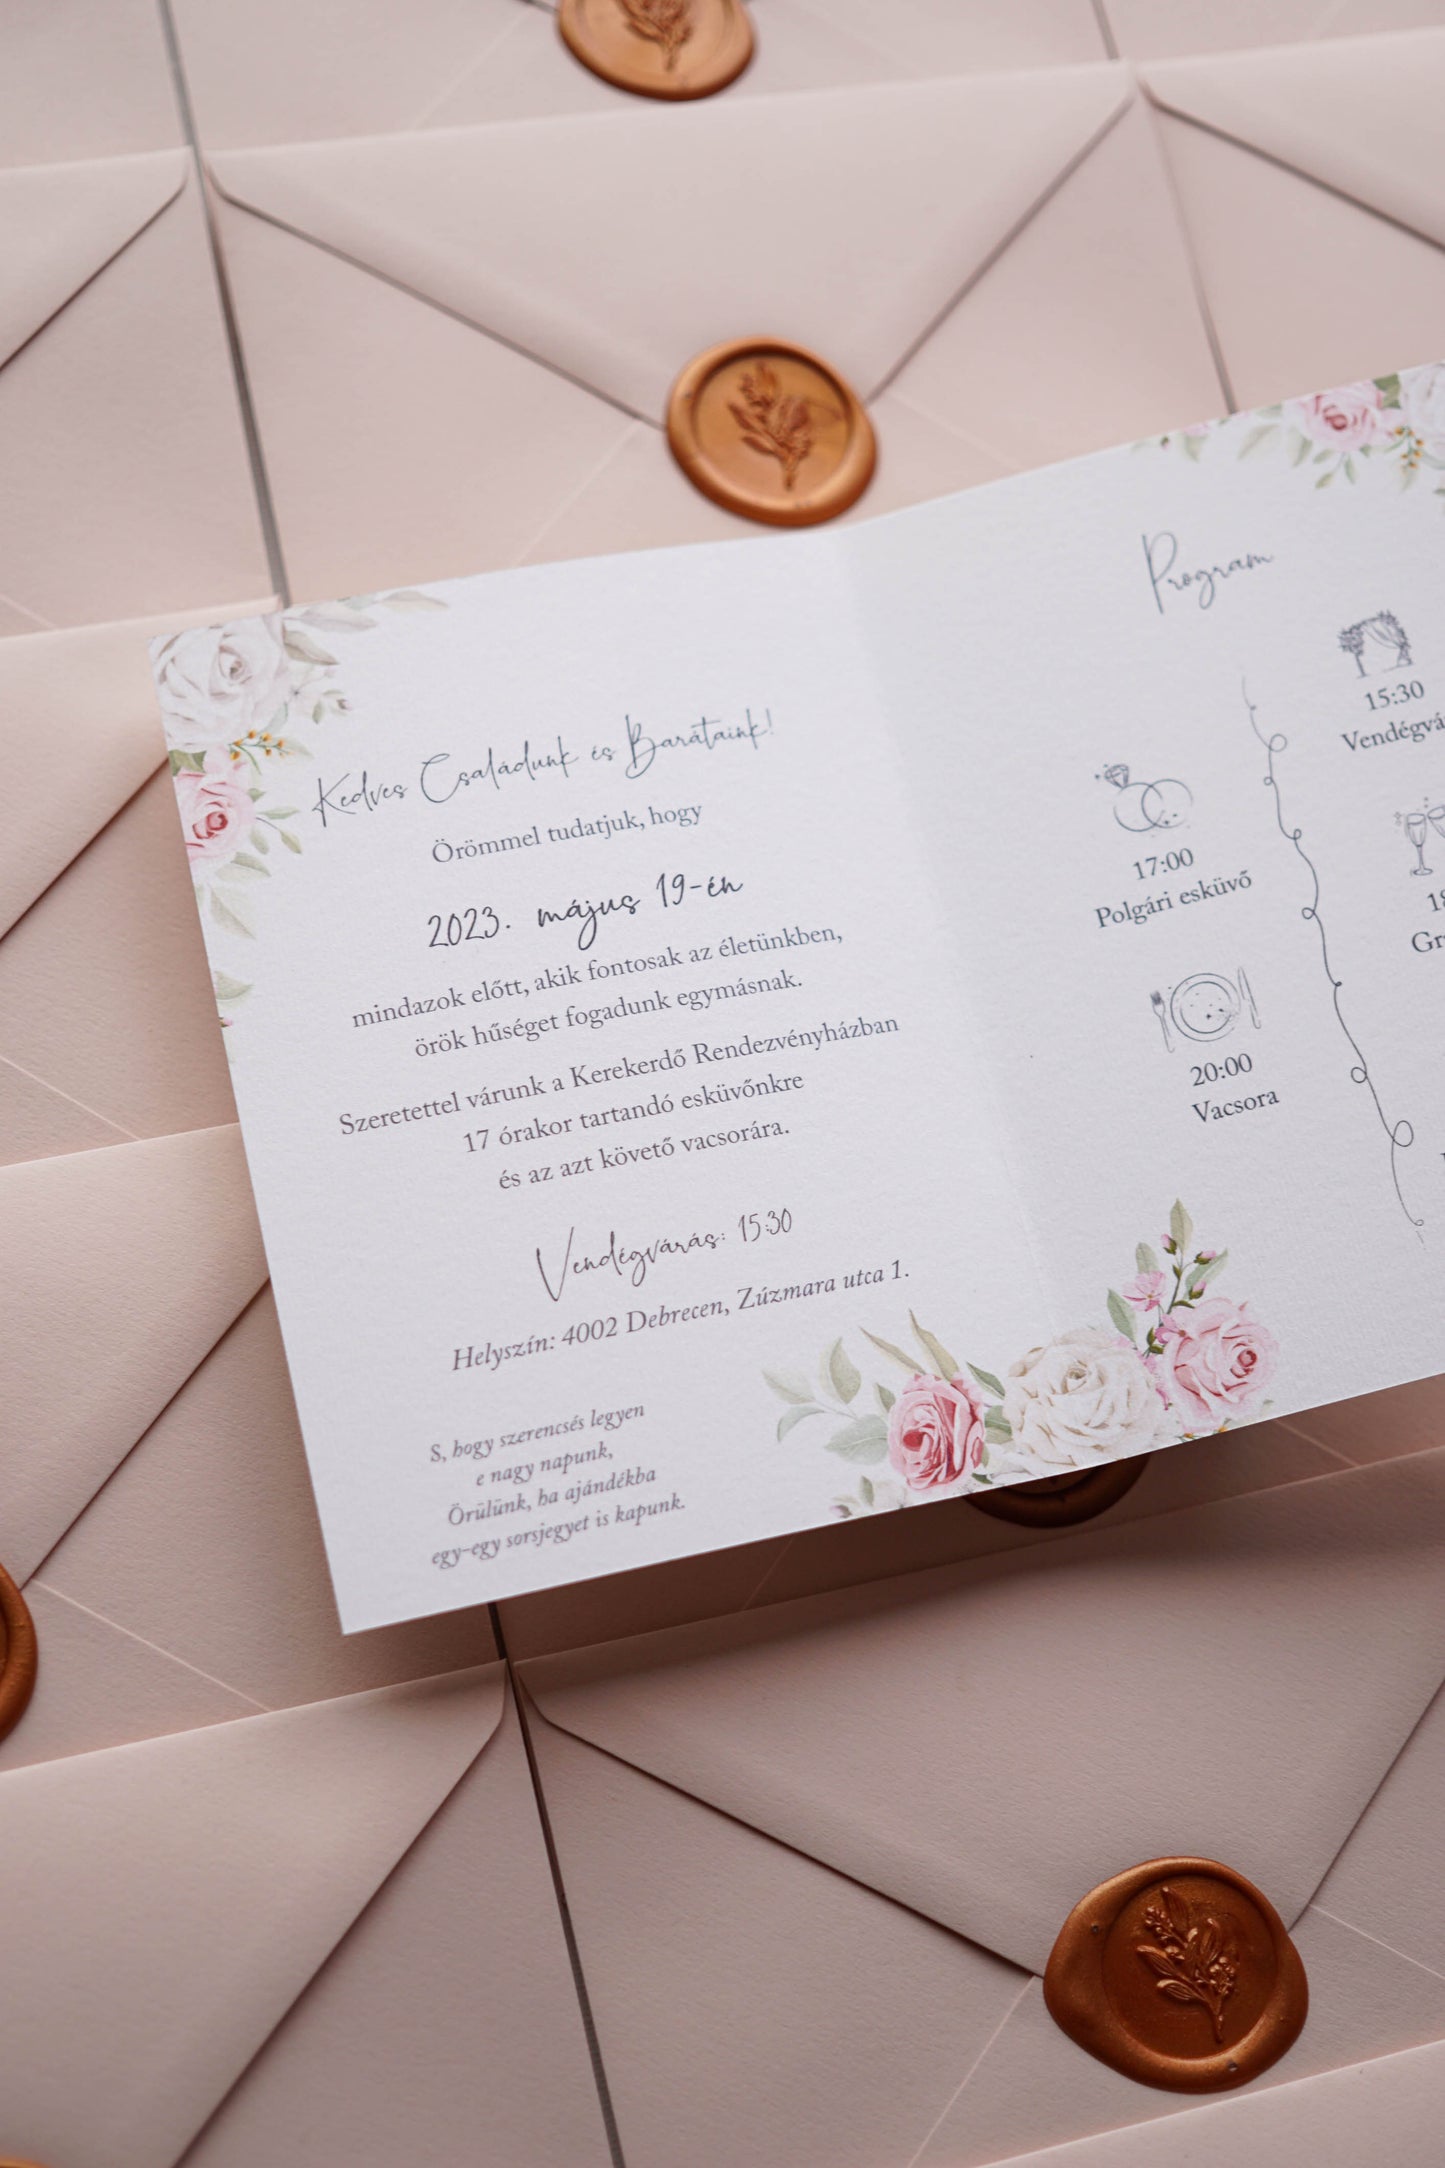 Kedves Családunk és Barátaink!
Örömmel tudatjuk, hogy
2023. május 19-én
mindazok előtt, akik fontosak az életünkben,
örök hűséget fogadunk egymásnak.
Szeretettel várunk a Kerekerdő Rendezvényházban
17 órakor tartandó esküvőnkre
és az azt követő vacsorára.
Vendégvárás: 15:30
Helyszín: 4002 Debrecen, Zúzmara utca 1.
S, hogy szerencsés legyen
e nagy napunk,
Örülünk, ha ajándékba
egy-egy sorsjegyet is kapunk.
Program
15:30
17:00
Polgári esküvő
20:00
Vacsora